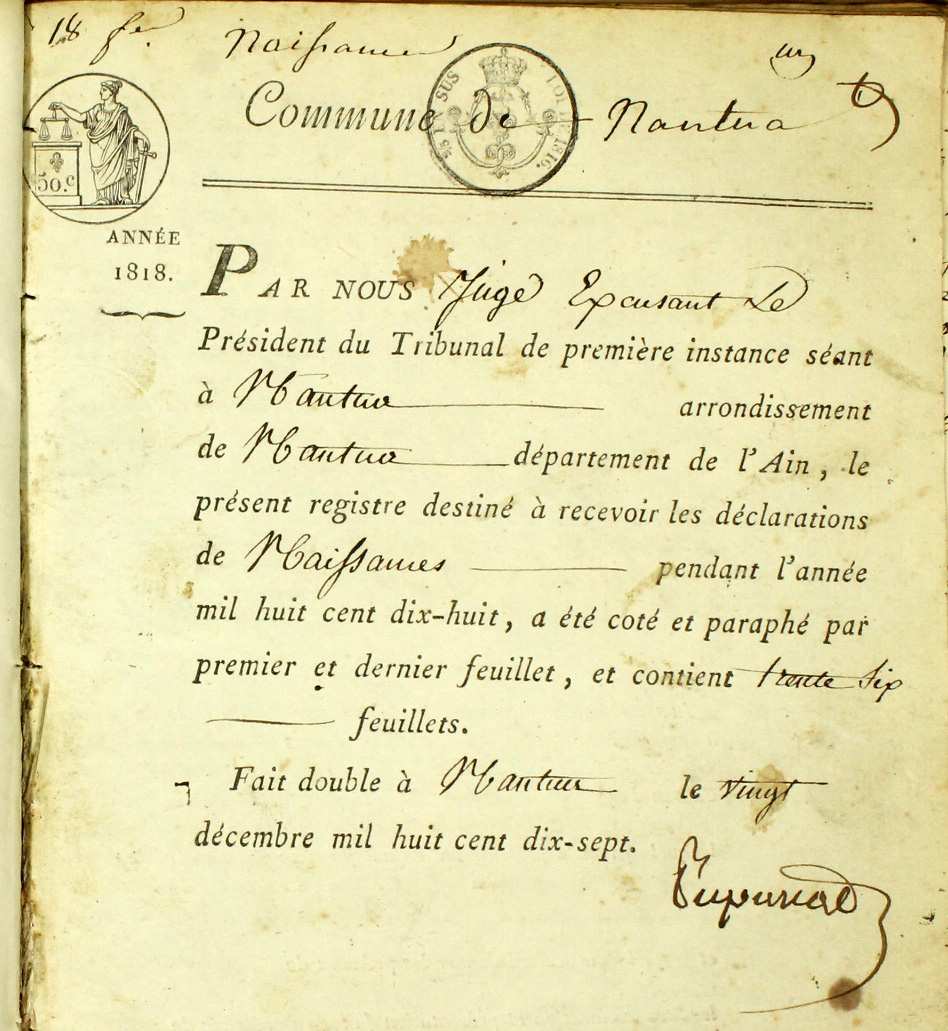 18 fer Naissances un
Commune de Nantua
50.c
EN SUS
LOI DE 1816.
ANNÉE
1818.
PAR NOUS Juge Excusant Le
Président du Tribunal de première instance séant
à Nantua arrondissement
de Nantua département de l'Ain, le
présent registre destiné à recevoir les déclarations
de Naissances pendant l'année
mil huit cent dix-huit, a été coté et paraphé par
premier et dernier feuillet, et contient trente Six
feuillets.
Fait double à Nantua le vingt
décembre mil huit cent dix-sept.